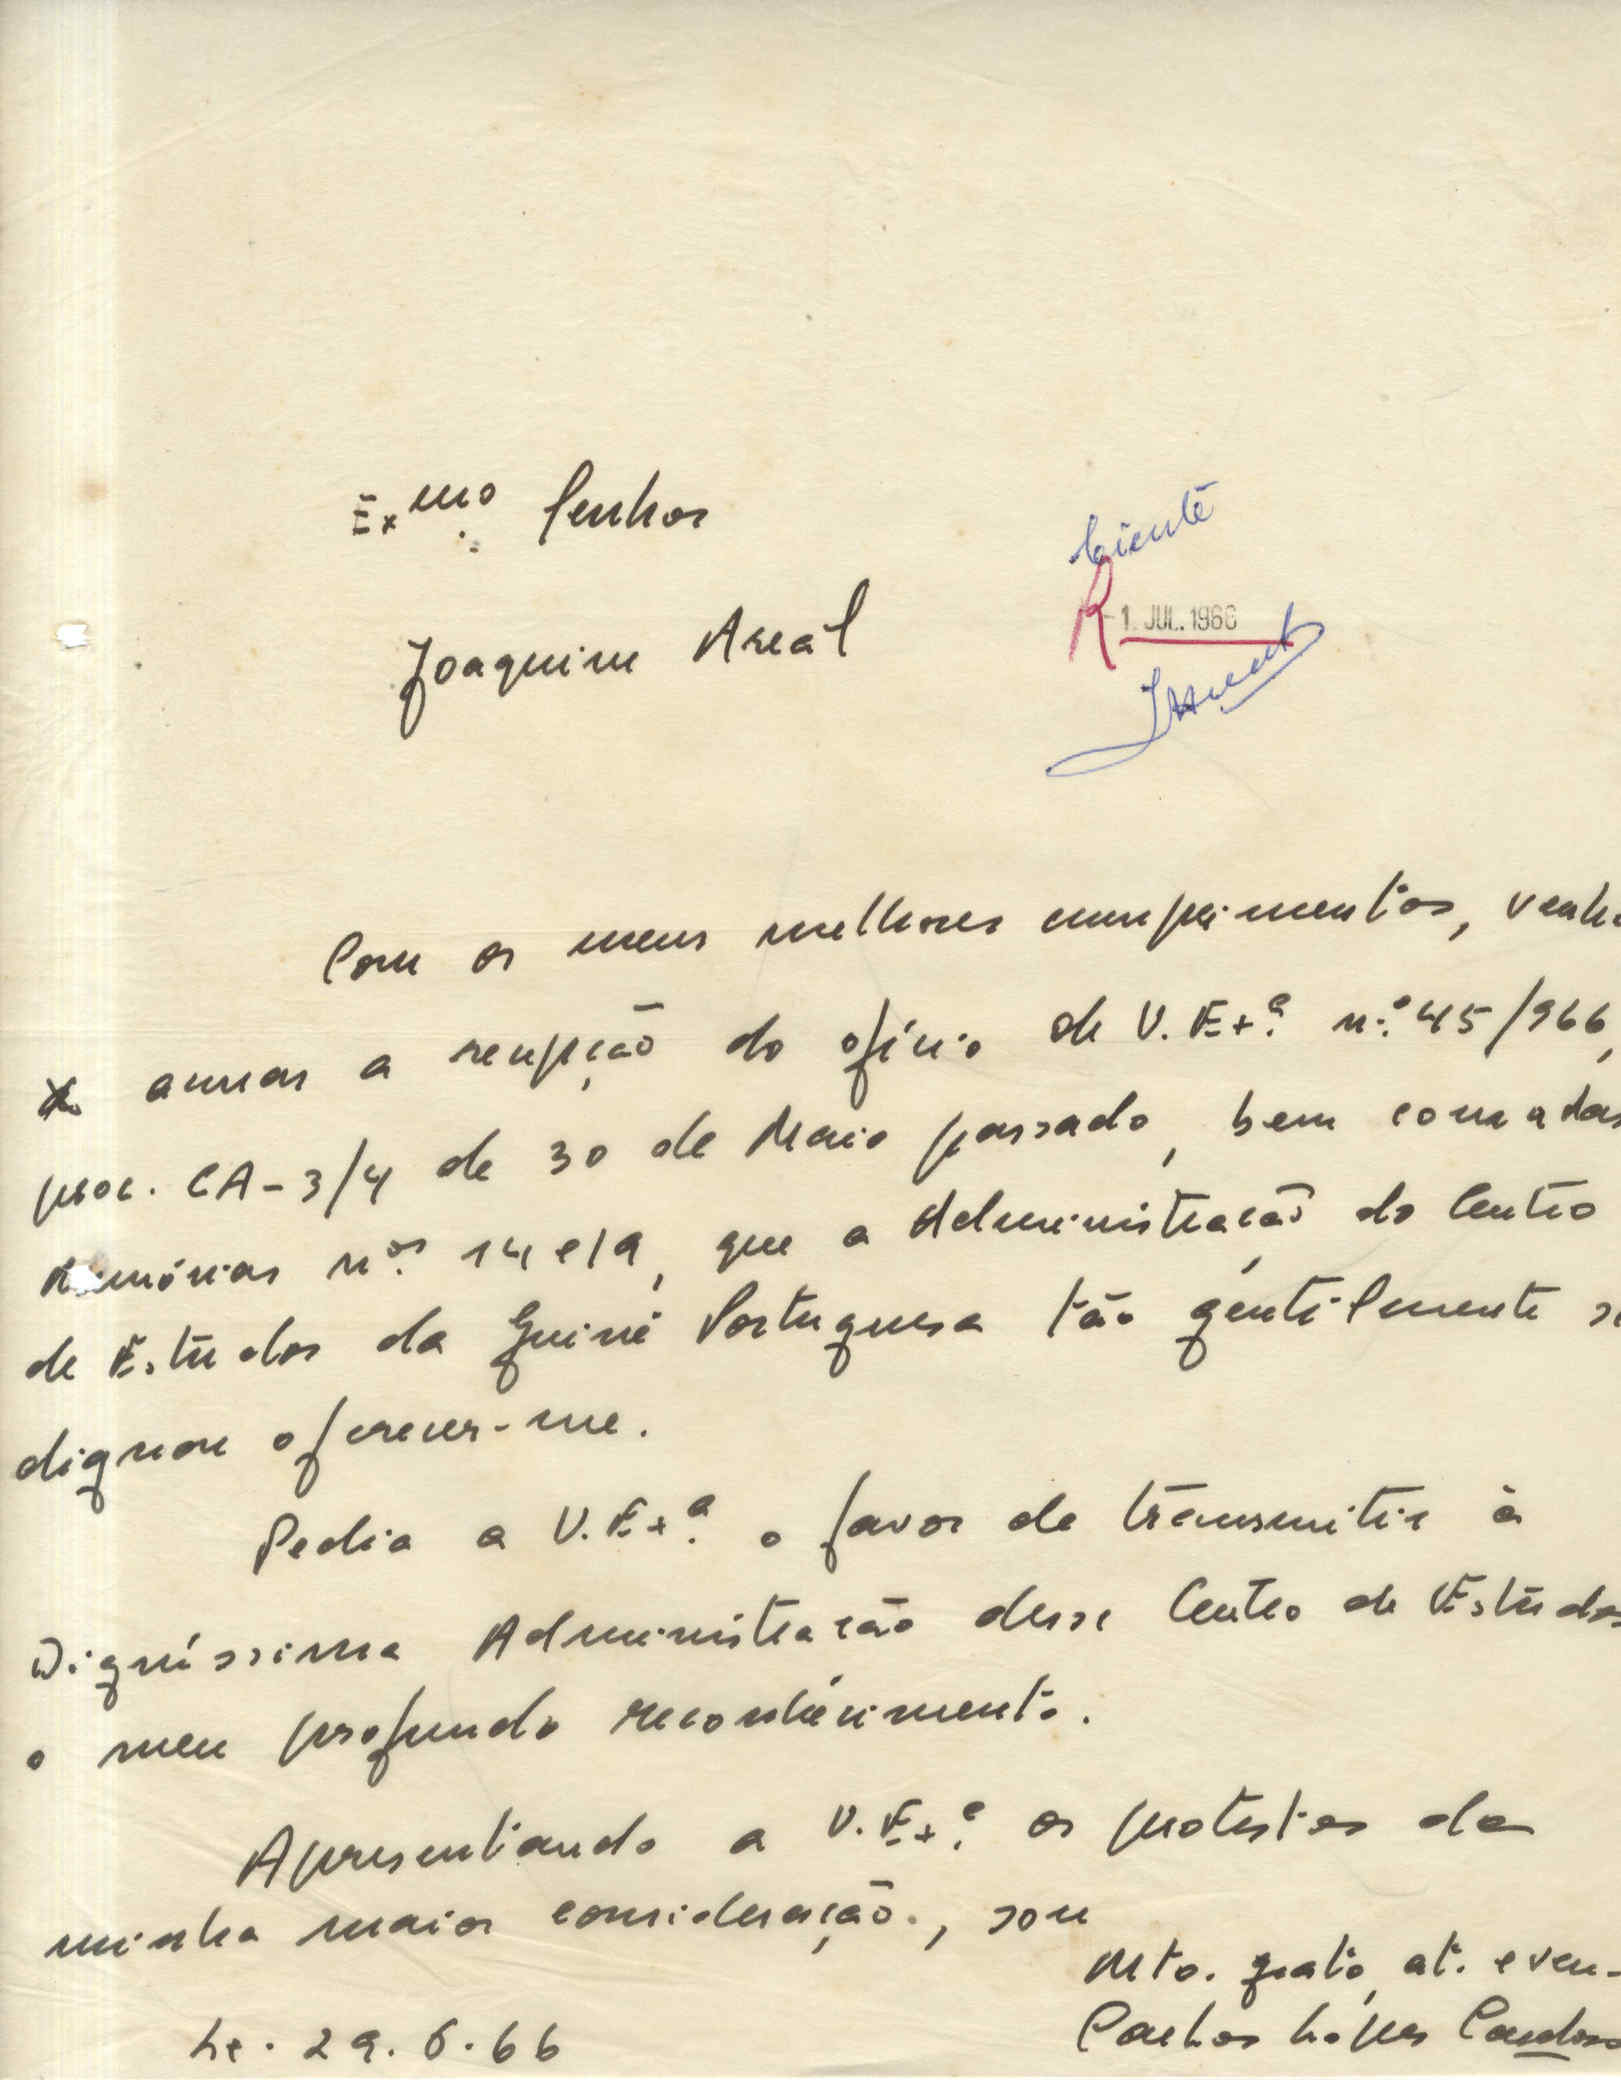 Ex.mo Senhor
Ciente
R -1. JUL. 1966
Joaquim Areal
Com os meus melhores cumprimentos, venho
acusar a recepção do ofício de V. Ex.ª n.º 45/966,
proc. CA-3/4 de 30 de Maio passado, bem como das
Memórias n.os 14 e 19, que a Administração do Centro
de Estudos da Guiné Portuguesa tão gentilmente se
dignou oferecer-me.
Pedia a V. Ex.ª o favor de transmitir à
Digníssima Administração desse Centro de Estudos
o meu profundo reconhecimento.
Apresentando a V. Ex.ª os protestos da
minha maior consideração., sou
Mto. grato, at. e ven.
Carlos Lopes Cardoso
Lx. 29.6.66